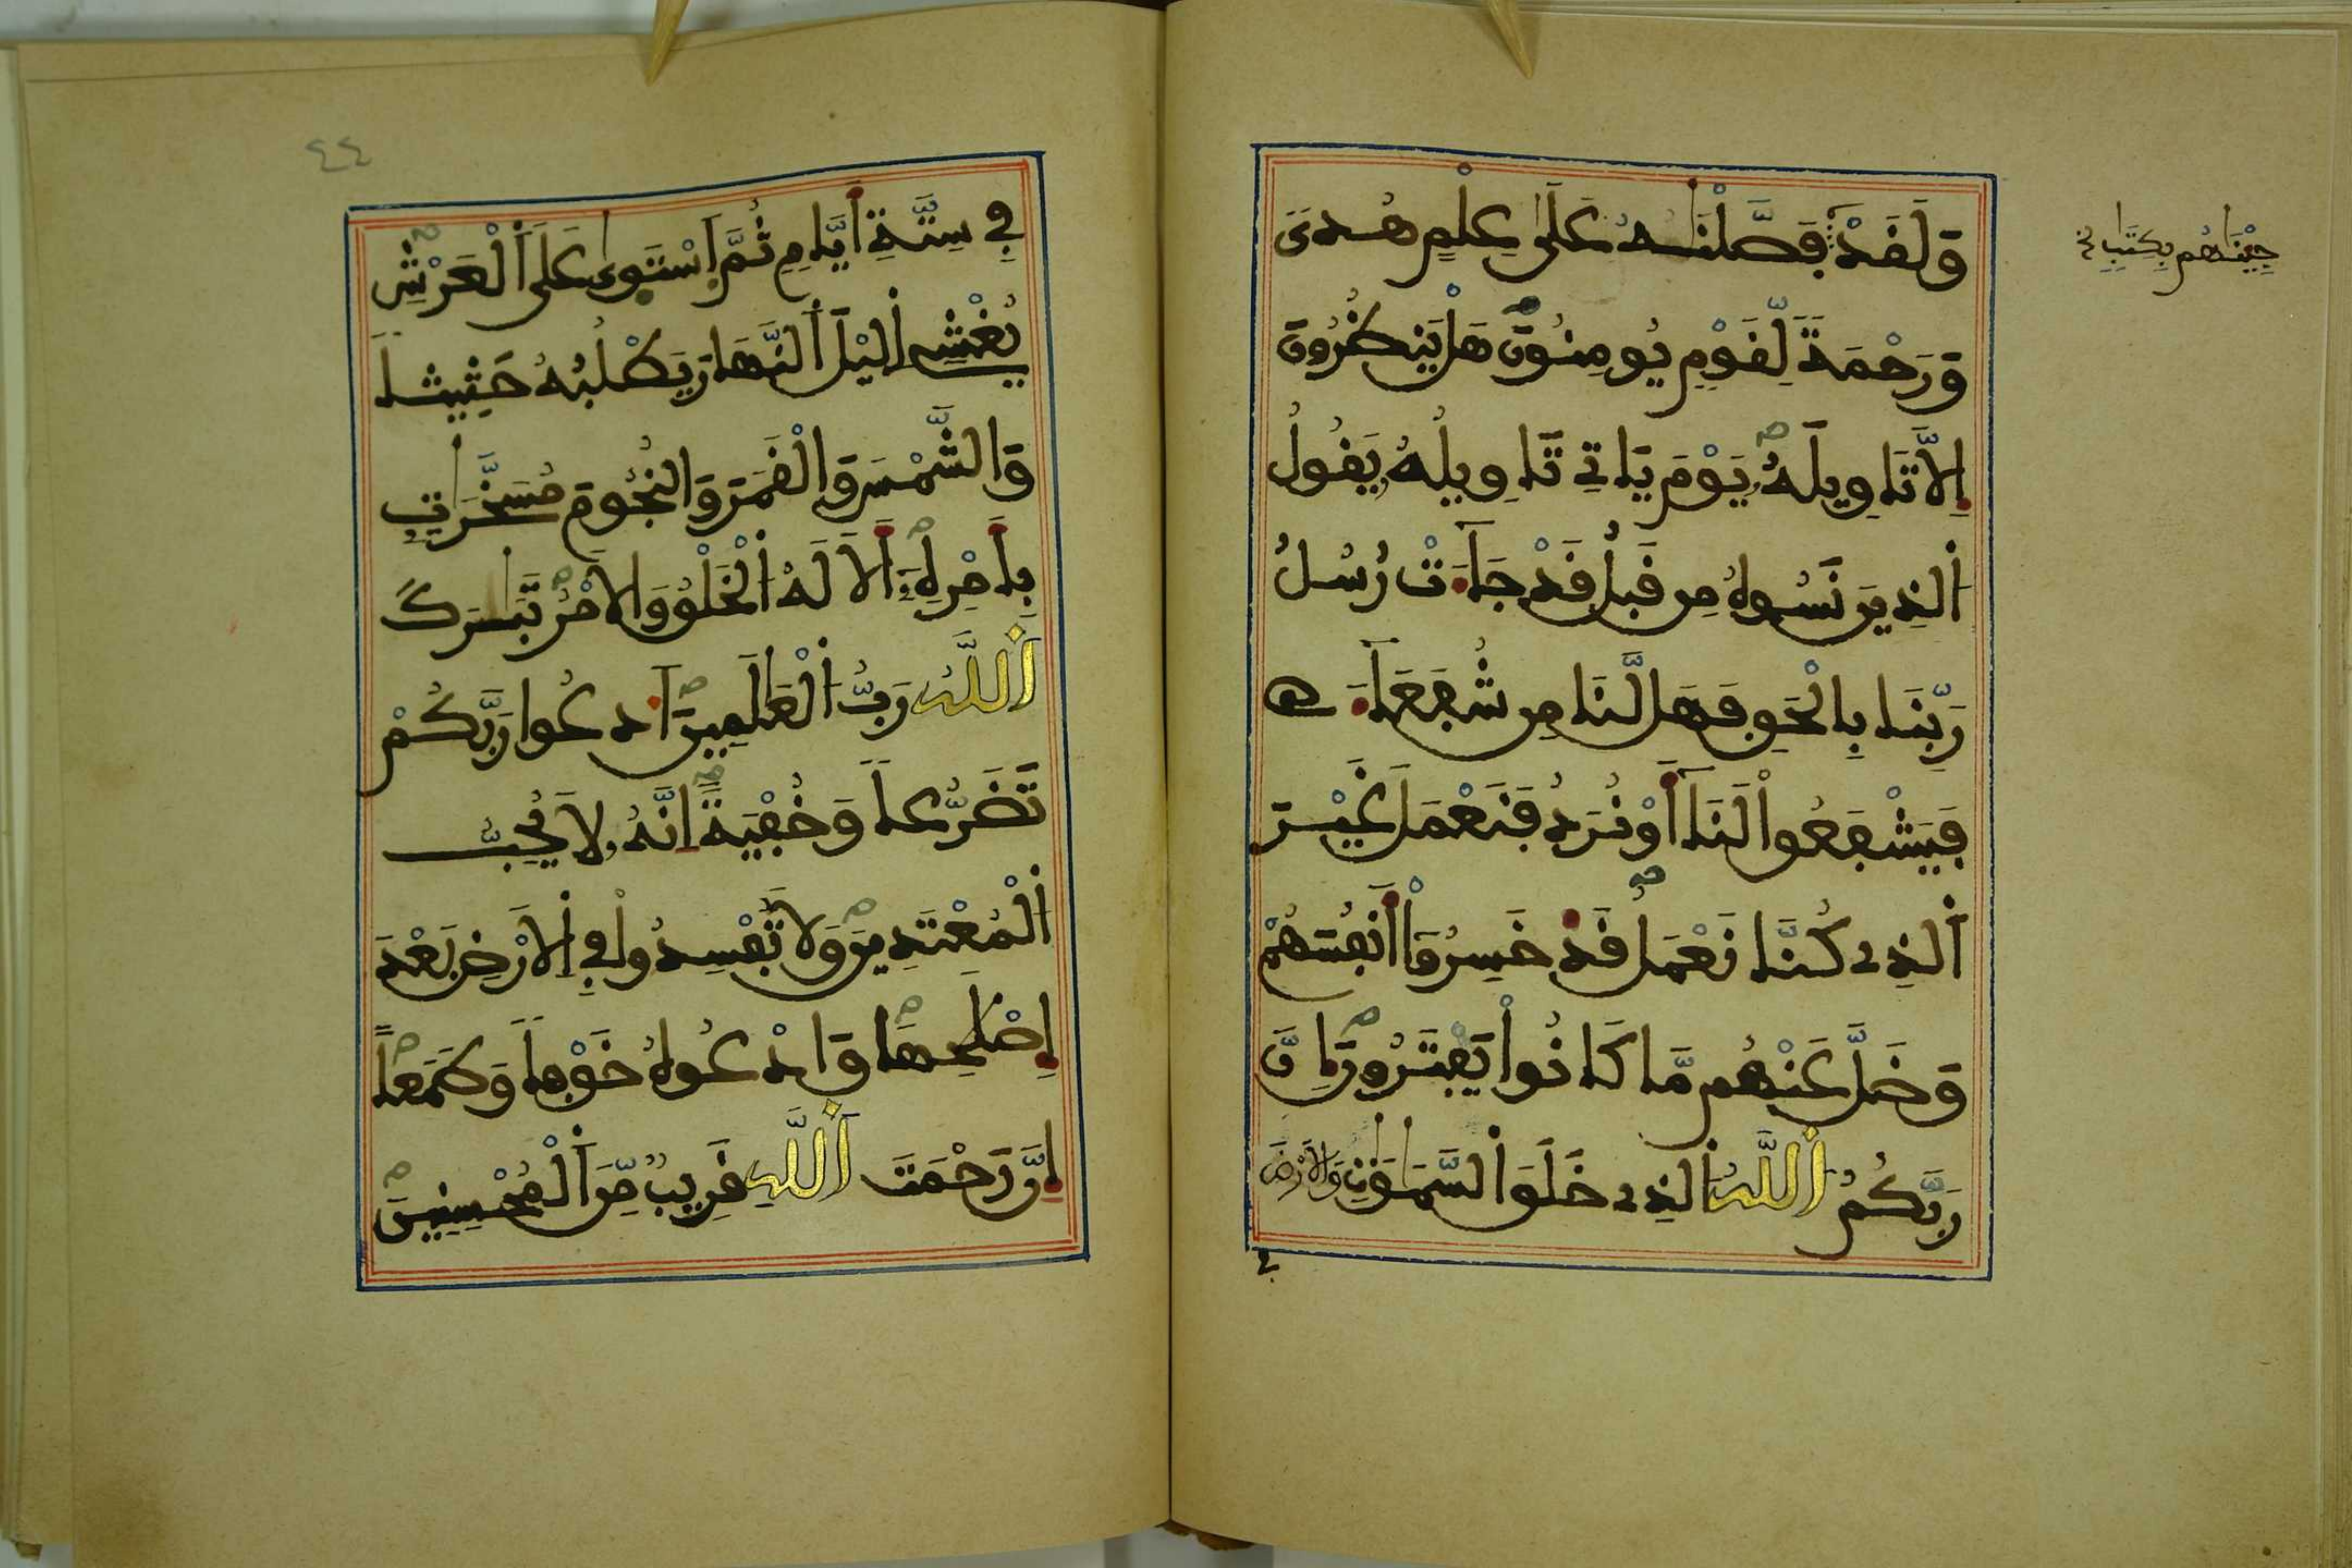 وَلَقَدْ فَصَّلْنَٰهُ عَلَىٰ عِلْمٍ هُدىً
جِيْنَٰهُم بِكِتَٰبٍ
وَرَحْمَةً لِّقَوْمٍ يُومِنُونَ هَلْ يَنظُرُونَ
إِلَّا تَاوِيلَهُ يَوْمَ يَاتِي تَاوِيلُهُ يَقُولُ
اَ۬لذِينَ نَسُوهُ مِن قَبْلُ قَدْ جَآءَتْ رُسُلُ
رَبِّنَا بِالْحَقِّ فَهَل لَّنَا مِن شُفَعَآءَ
فَيَشْفَعُواْ لَنَآ أَوْ نُرَدُّ فَنَعْمَلَ غَيْرَ
اَ۬لذِے كُنَّا نَعْمَلُ قَدْ خَسِرُوٓاْ أَنفُسَهُمْ
وَضَلَّ عَنْهُم مَّا كَانُواْ يَفْتَرُونَ إِنَّ
رَبَّكُمُ اُ۬للَّهُ اُ۬لذِے خَلَقَ اَ۬لسَّمَٰوَٰتِ وَالَارْضَ
فِي
٤٤
فِي سِتَّةِ أَيَّامٍ ثُمَّ اَ۪سْتَوىٰ عَلَى اَ۬لْعَرْشِ
يُغْشِے اِ۬ليْلَ اَ۬لنَّهَارَ يَطْلُبُهُ حَثِيثاً
وَالشَّمْسَ وَالْقَمَرَ وَالنُّجُومَ مُسَخَّرَٰتٍ
بِأَمْرِهِۦٓ أَلَا لَهُ اُ۬لْخَلْقُ وَالَامْرُ تَبَٰرَكَ
اَ۬للَّهُ رَبُّ اُ۬لْعَٰلَمِينَ اَ۟دْعُوا رَبَّكُمْ
تَضَرُّعاً وَخُفْيَةً اِنَّهُ لَا يُحِبُّ
اُ۬لْمُعْتَدِينَ وَلَا تُفْسِدُواْ فِي اِ۬لَارْضِ بَعْدَ
إِصْلَٰحِهَا وَادْعُوهُ خَوْفاً وَطَمَعاً
إِنَّ رَحْمَتَ اَ۬للَّهِ قَرِيبٌ مِّنَ اَ۬لْمُحْسِنِينَ